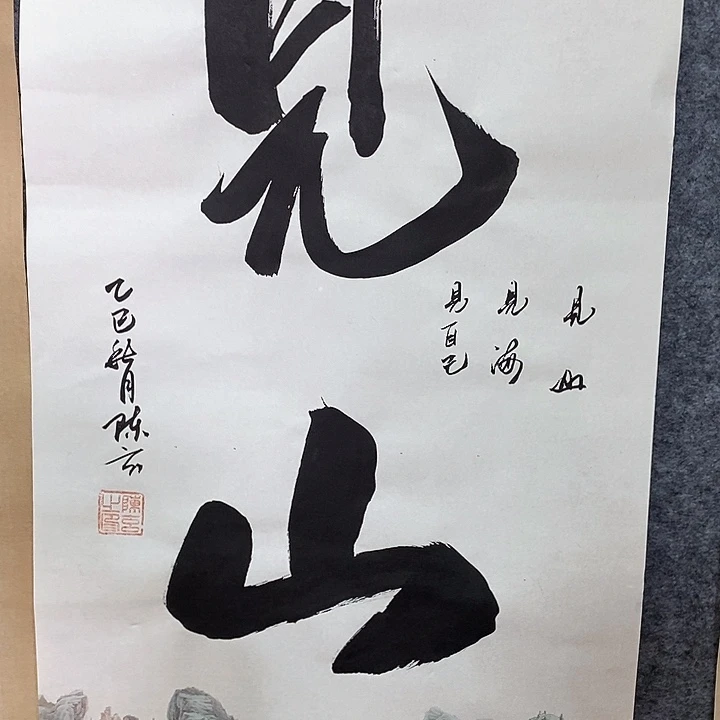 見山
見山
見海
見自己
乙巳秋月陈